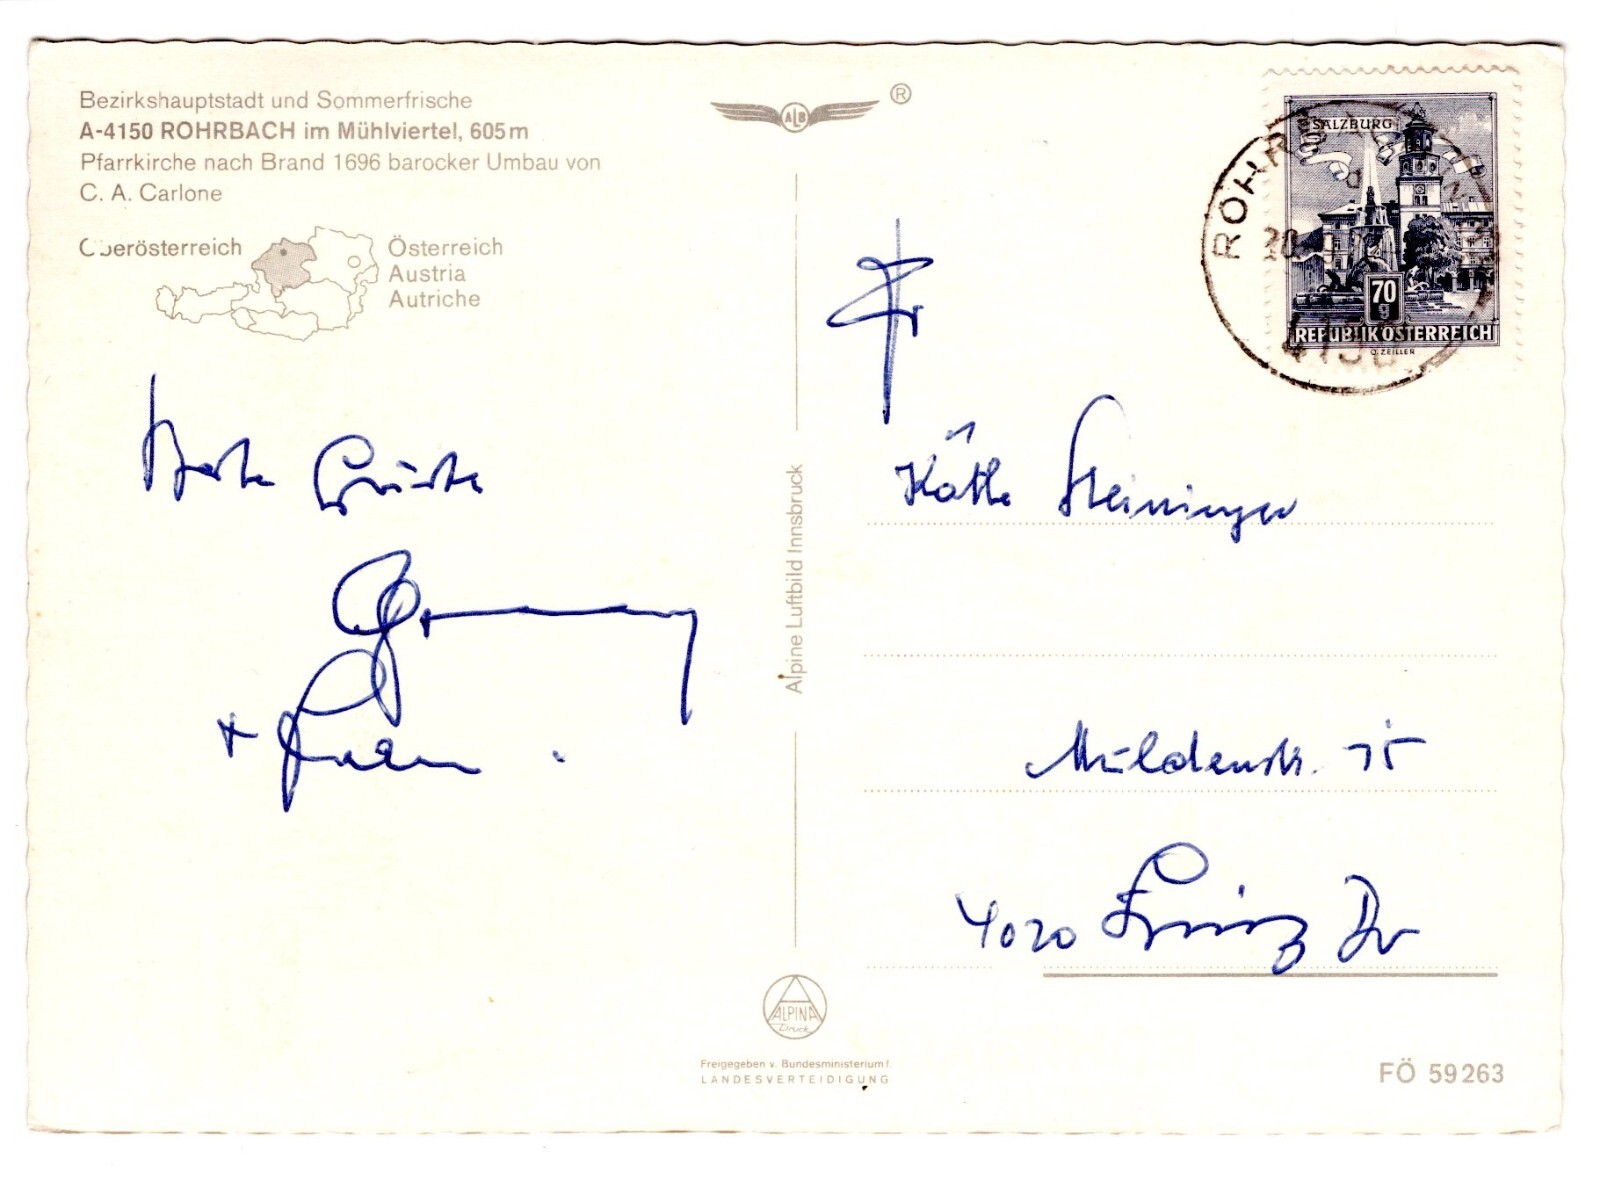 Bezirkshauptstadt und Sommerfrische
A-4150 ROHRBACH im Mühlviertel, 605 m
Pfarrkirche nach Brand 1696 barocker Umbau von
C. A. Carlone
Oberösterreich
Österreich
Austria
Autriche
Beste Grüße
+
ALB
®
Alpine Luftbild Innsbruck
SALZBURG
70
g
REPUBLIK ÖSTERREICH
O. ZEILLER
ROHRB
20
4150
Fr
Käthe Steininger
Müldenstr. 15
4020 Linz
ALPINA
Druck
Freigegeben v. Bundesministerium f.
LANDESVERTEIDIGUNG
FÖ 59263